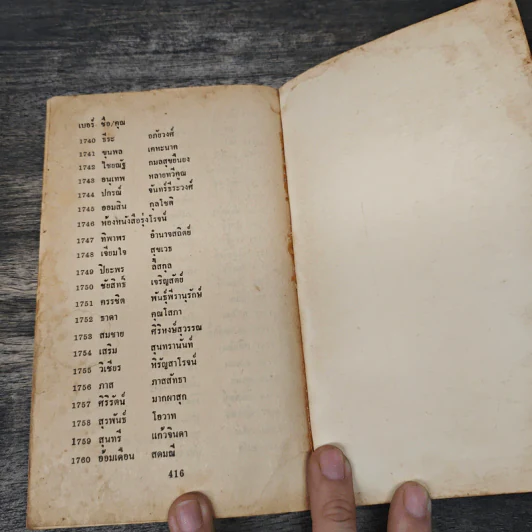 เบอร์ ชื่อ/คุณ
1740 ธีระ อภัยวงศ์
1741 ขุนพล เคหะนาค
1742 ไชยณัฐ กมลสุขยืนยง
1743 อนุเทพ หลายทวีคุณ
1744 ปกรณ์ จันทร์ธีระวงศ์
1745 ออมสิน กุลโชติ
1746 ห้องหนังสือรุ่งโรจน์
1747 ทิพาพร อำนาจสถิตย์
1748 เจียมใจ สุขเวช
1749 ปิยะพร ลี้สกุล
1750 ชัยสิทธิ์ เจริญสัตย์
1751 ครรชิต พันธุ์พีรานุรักษ์
1752 ธาดา คุณโสภา
1753 สมชาย ศิริหงษ์สุวรรณ
1754 เสริม สุนทรานันท์
1755 วิเชียร หิรัญสาโรจน์
1756 ภาส ภาสสัทธา
1757 ศิริรัตน์ มากผาสุก
1758 สุรพันธ์ โอวาท
1759 สุนทรี แก้วจินดา
1760 อ้อมเดือน สดมณี
416